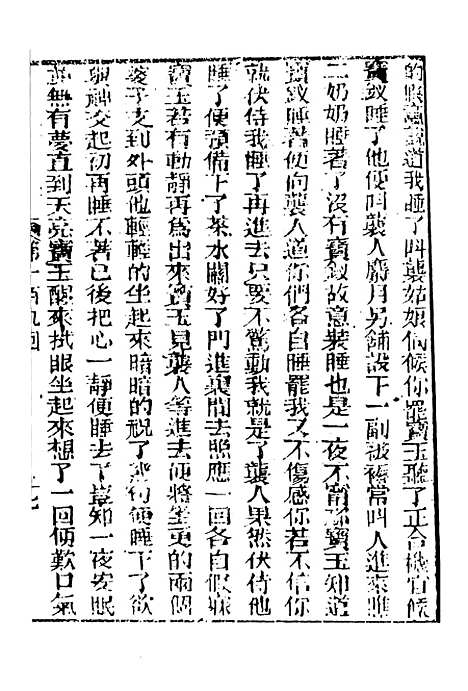 的麽說道我睡了叫襲姑娘伺候你罷寶玉聽了正合機宜候
寶釵睡了他便叫襲人麝月另鋪設下一副被褥常叫人進來瞧
二奶奶睡着了沒有寶釵故意裝睡也是一夜不寧那寶玉知道
寶釵睡着便向襲人道你們各自睡罷我又不傷感你若不信你
就伏侍我睡了再進去只要不驚動我就是了襲人果然伏侍他
睡了便預備下了茶水關好了門進裏間去照應一回各自假寐
寶玉若有動靜再爲出來寶玉見襲人等進去便將坐更的兩個
婆子支到外頭他輕輕的坐起來暗暗的祝了幾句便睡下了欲
與神交起初再睡不着已後把心一靜便睡去了豈知一夜安眠
無有夢直到天亮寶玉醒來拭眼坐起來想了一回便歎口氣
第一百九回